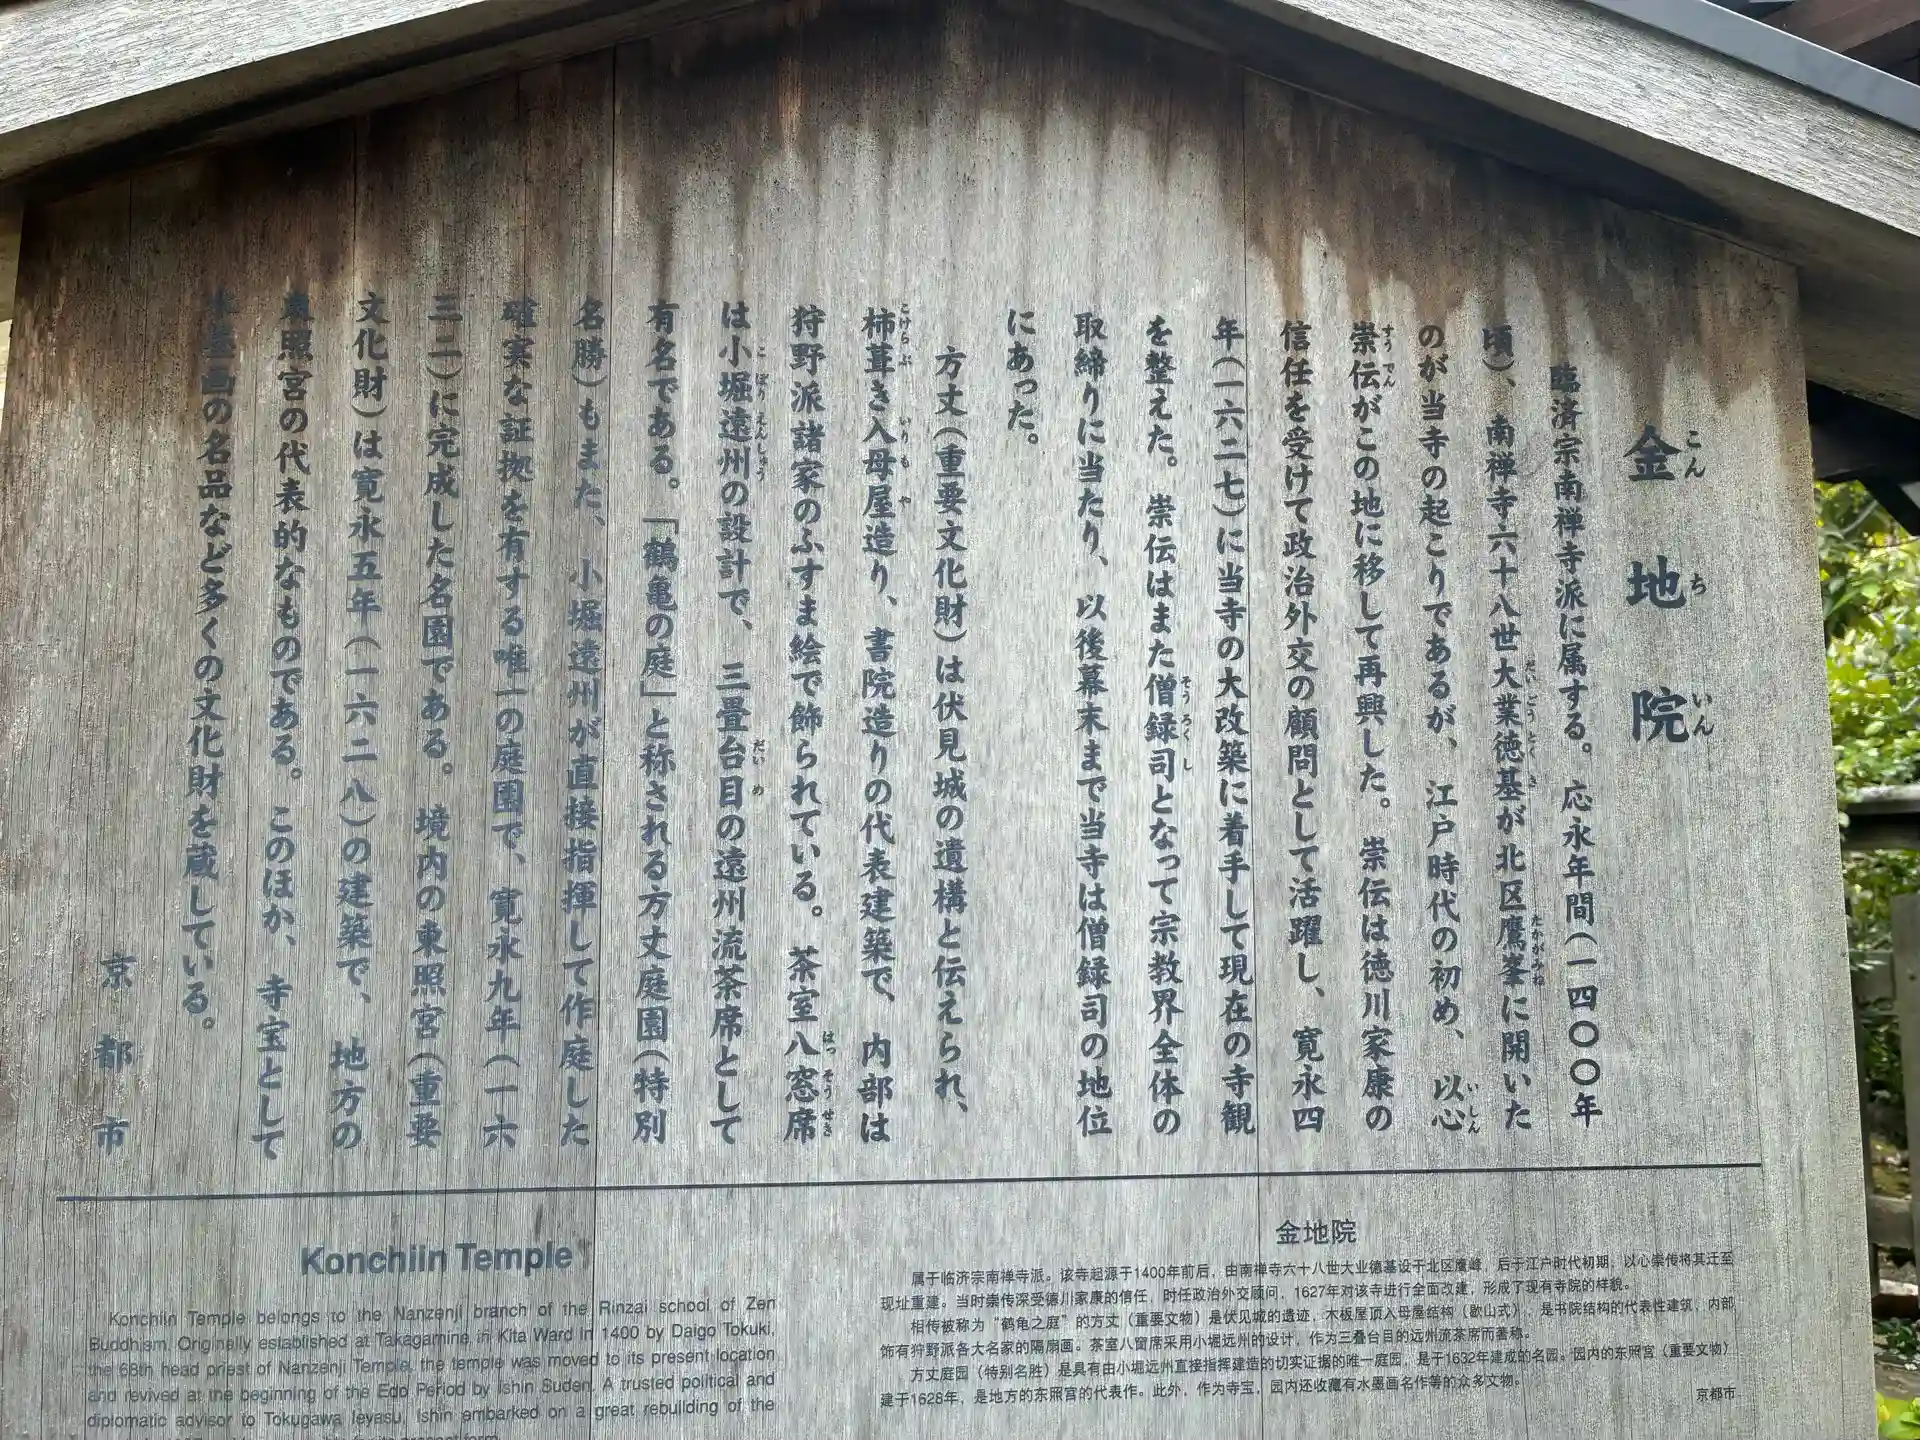 金地院
こんちいん
臨済宗南禅寺派に属する。応永年間(一四〇〇年
頃)、南禅寺六十八世大業徳基が北区鷹峯に開いた
だいごうとくき
たかがみね
のが当寺の起こりであるが、江戸時代の初め、以心
いしん
崇伝がこの地に移して再興した。崇伝は徳川家康の
すうでん
信任を受けて政治外交の顧問として活躍し、寛永四
年(一六二七)に当寺の大改築に着手して現在の寺観
を整えた。崇伝はまた僧録司となって宗教界全体の
そうろくし
取締りに当たり、以後幕末まで当寺は僧録司の地位
にあった。
方丈(重要文化財)は伏見城の遺構と伝えられ、
杮葺き入母屋造り、書院造りの代表建築で、内部は
こけらぶ
いりもや
狩野派諸家のふすま絵で飾られている。茶室八窓席
はっそうせき
は小堀遠州の設計で、三畳台目の遠州流茶席として
こぼりえんしゅう
だいめ
有名である。「鶴亀の庭」と称される方丈庭園(特別
名勝)もまた、小堀遠州が直接指揮して作庭した
確実な証拠を有する唯一の庭園で、寛永九年(一六
三二)に完成した名園である。境内の東照宮(重要
文化財)は寛永五年(一六二八)の建築で、地方の
東照宮の代表的なものである。このほか、寺宝として
水墨画の名品など多くの文化財を蔵している。
京都市
Konchiin Temple
Konchiin Temple belongs to the Nanzenji branch of the Rinzai school of Zen
Buddhism. Originally established at Takagamine in Kita Ward in 1400 by Daigo Tokuki,
the 68th head priest of Nanzenji Temple, the temple was moved to its present location
and revived at the beginning of the Edo Period by Ishin Suden. A trusted political and
diplomatic advisor to Tokugawa Ieyasu, Ishin embarked on a great rebuilding of the
金地院
属于临济宗南禅寺派。该寺起源于1400年前后，由南禅寺六十八世大业德基设于北区鹰峰，后于江户时代初期，以心崇传将其迁至
现址重建。当时崇传深受德川家康的信任，时任政治外交顾问，1627年对该寺进行全面改建，形成了现有寺院的样貌。
相传被称为“鹤龟之庭”的方丈（重要文物）是伏见城的遗迹，木板屋顶入母屋结构（歇山式），是书院结构的代表性建筑，内部
饰有狩野派各大名家的隔扇画。茶室八窗席采用小堀远州的设计，作为三叠台目的远州流茶席而著称。
方丈庭园（特别名胜）是具有由小堀远州直接指挥建造的切实证据的唯一庭园，是于1632年建成的名园。园内的东照宫（重要文物）
建于1628年，是地方的东照宫的代表作。此外，作为寺宝，园内还收藏有水墨画名作等的众多文物。
京都市